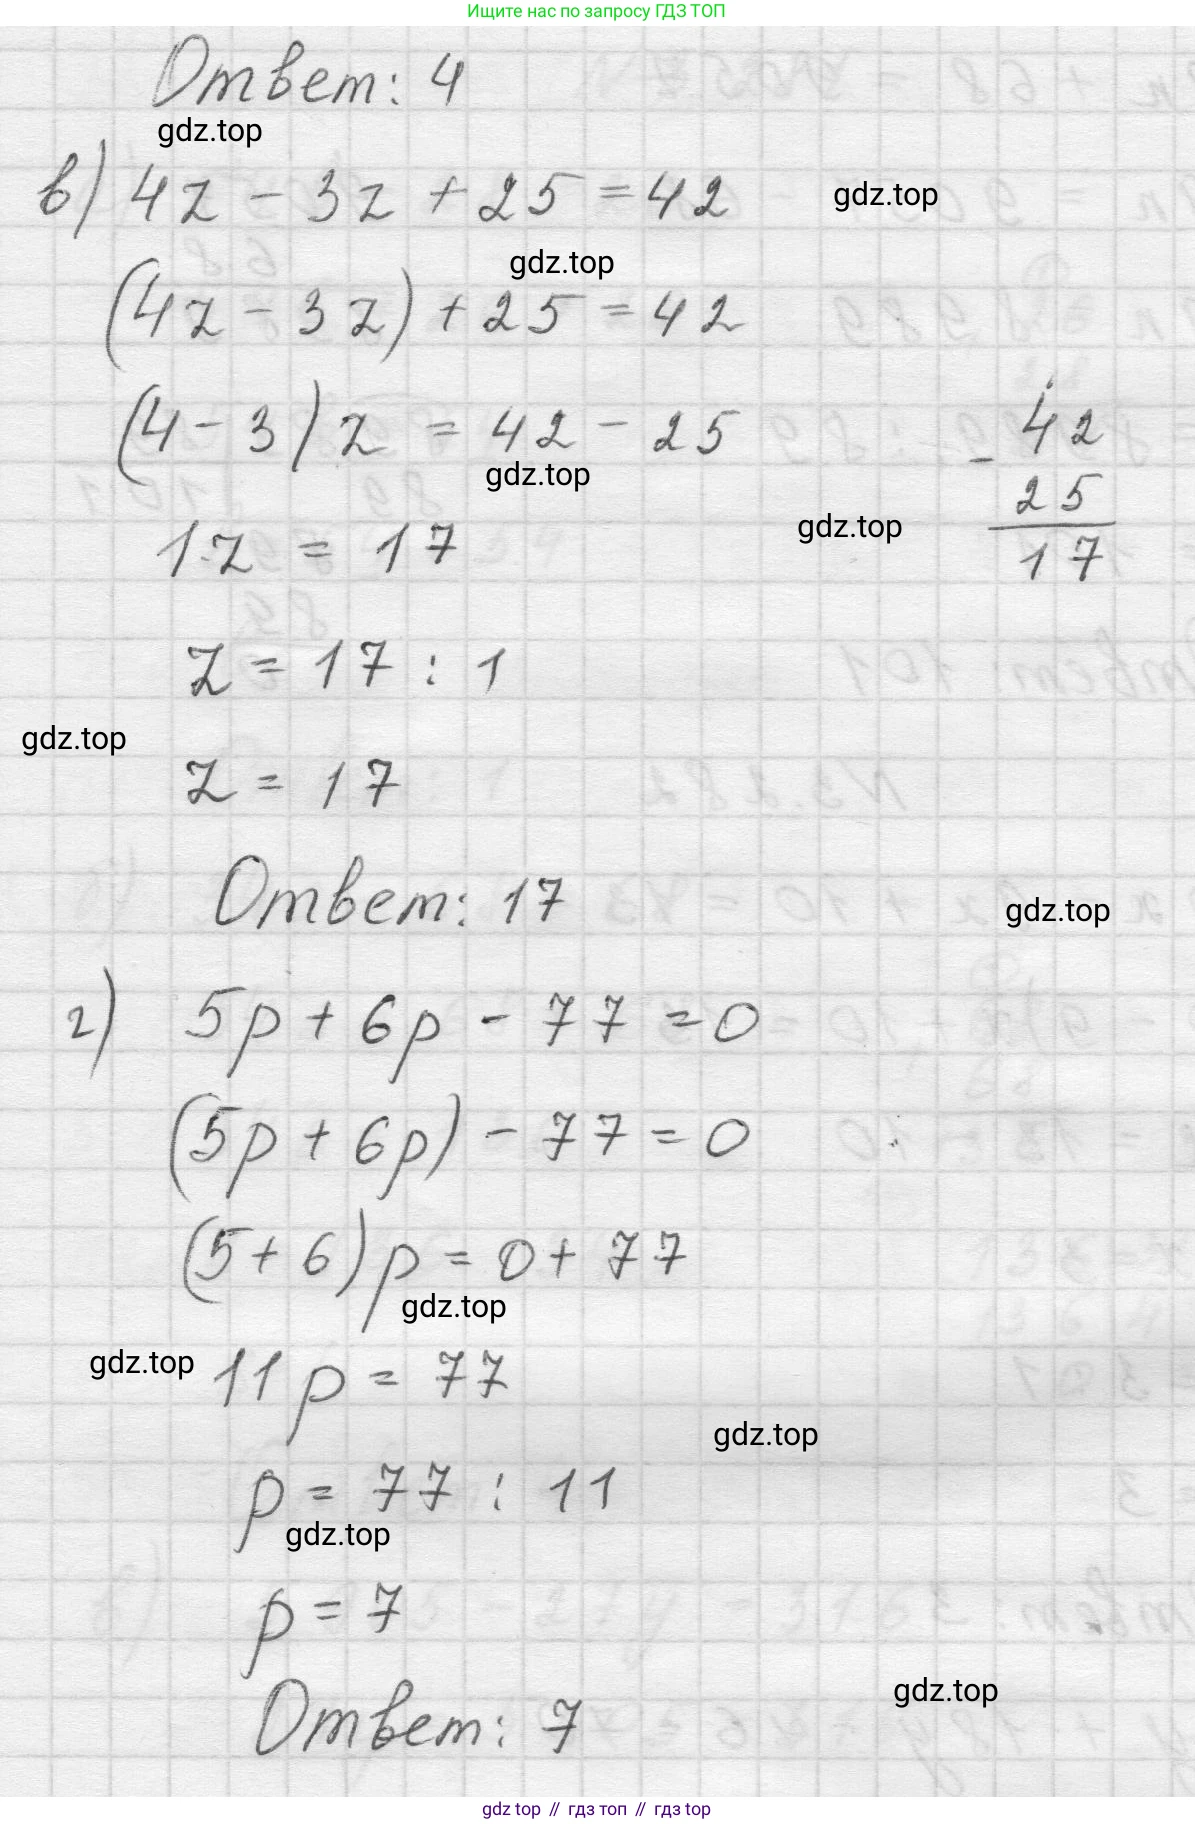 Ищите нас по запросу ГДЗ ТОП
Ответ: 4
gdz.top
в) 4z - 3z + 25 = 42
gdz.top
gdz.top
(4z - 3z) + 25 = 42
(4 - 3)z = 42 - 25
gdz.top
- 42
25
17
gdz.top
1·z = 17
z = 17 : 1
gdz.top
z = 17
Ответ: 17
gdz.top
г) 5p + 6p - 77 = 0
(5p + 6p) - 77 = 0
(5 + 6)p = 0 + 77
gdz.top
gdz.top
11p = 77
gdz.top
p = 77 : 11
gdz.top
p = 7
gdz.top
Ответ: 7
gdz top // гдз топ // гдз top